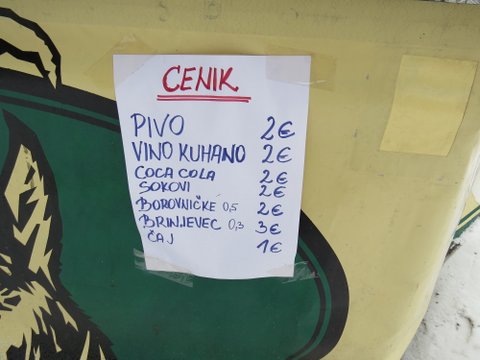 CENIK
PIVO 2€
VINO KUHANO 2€
COCA COLA 2€
SOKOVI 2€
BOROVNIČKE 0,5 2€
BRINJEVEC 0,3 3€
ČAJ 1€